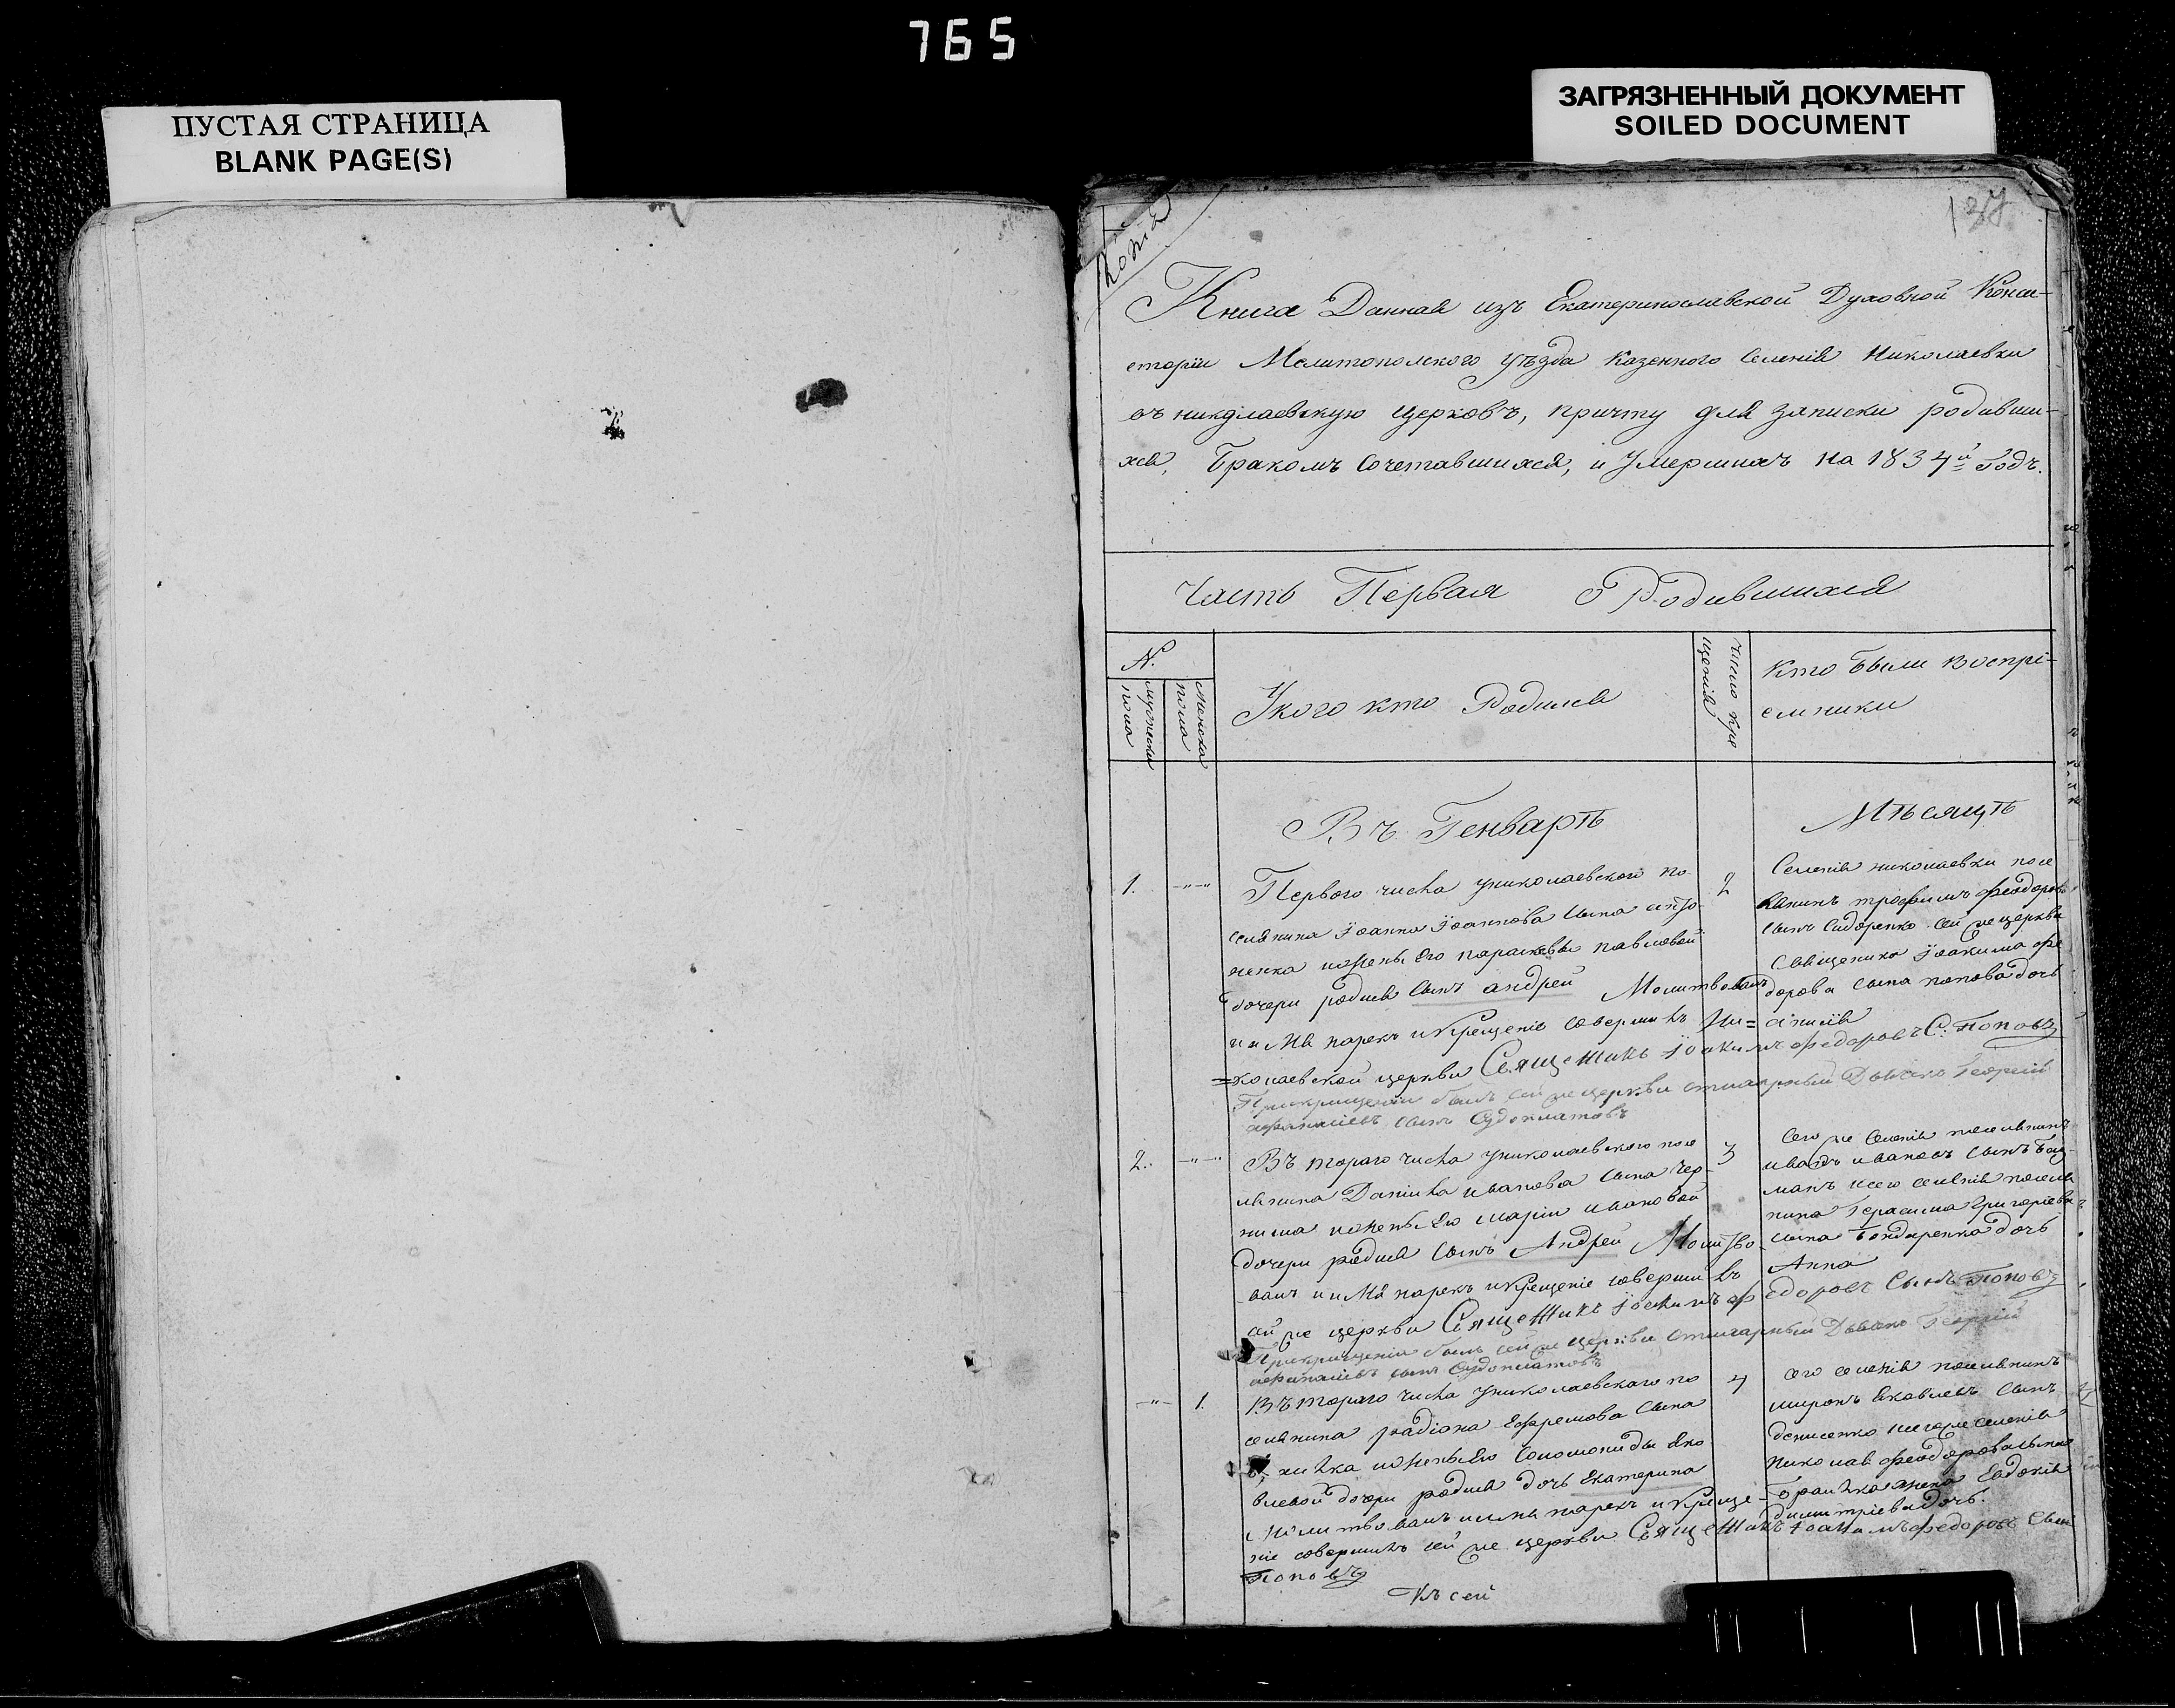 765
ПУСТАЯ СТРАНИЦА
BLANK PAGE(S)
ЗАГРЯЗНЕННЫЙ ДОКУМЕНТ
SOILED DOCUMENT
Копія
Книга Данная изъ Екатеринославской Духовной Конси-
сторіи Мелитополского уѣзда казенного Селенія Николаевки
въ николаевскую церковъ, причту для записки родивши-
хся, Бракомъ Сочетавшихся, и Умершихъ на 1834й Годъ.
Часть Первая О Родившихся
N.
мужеска пола
женска пола
У кого кто Родился
число кре
щенія
кто были воспрі-
емники
Въ Генварѣ
Мѣсяцѣ
1.
Первого числа униколаевского по-
селянина Іоанна Іоаннова сына
ненка ижены Его параскевы павловой
дочери родися сынъ андрей Молитвовалъ
имя нарекъ икрещеніе совершилъ Ни=
=колаевской церкви Священикъ Іоакимъ Федоровъ С. Поповъ
Прикрещеніи былъ сей же церкви Дьячекъ Георгій
сынъ
2
Селенія николаевки посе
лянинъ трофимъ феодоровъ
сынъ Сидоренко сей же церкви
Священика Іоакима фе
дорова сына попова дочь
2.
Въ тораго числа униколаевского посе
лянина Даніила иванова сына Чер-
ниша ижены Его маріи ивановой
дочери родися сынъ Андрей Молитво
валъ имя нарекъ икрещеніе совершилъ
сей же церкви Священикъ Іоакимъ Федоровъ Сынъ Поповъ
Прикрещеніи былъ сей же церкви Дьячекъ Георгій
сынъ
3
Сего же Селенія поселянинъ
иванъ ивановъ сынъ
исего селенія поселя
нина Герасима Григоріева
сына Бондаренка дочь
Анна
1.
Въ тораго числа униколаевскаго по
селянина радіона Ефремова сына
ижены Его Соломониды Яко
влевой дочери родися дочь Екатерина
Молитвовалъ имя нарекъ икреще-
ніе совершилъ сей же церкви Священикъ Іоакимъ Федоровъ Сынъ
Поповъ
4
сего селенія поселянинъ
миронъ Яковлевъ сынъ
денисенко исегоже селенія
николая феодорова сына
жена Евдокія
димитріева дочь.
Къ сей